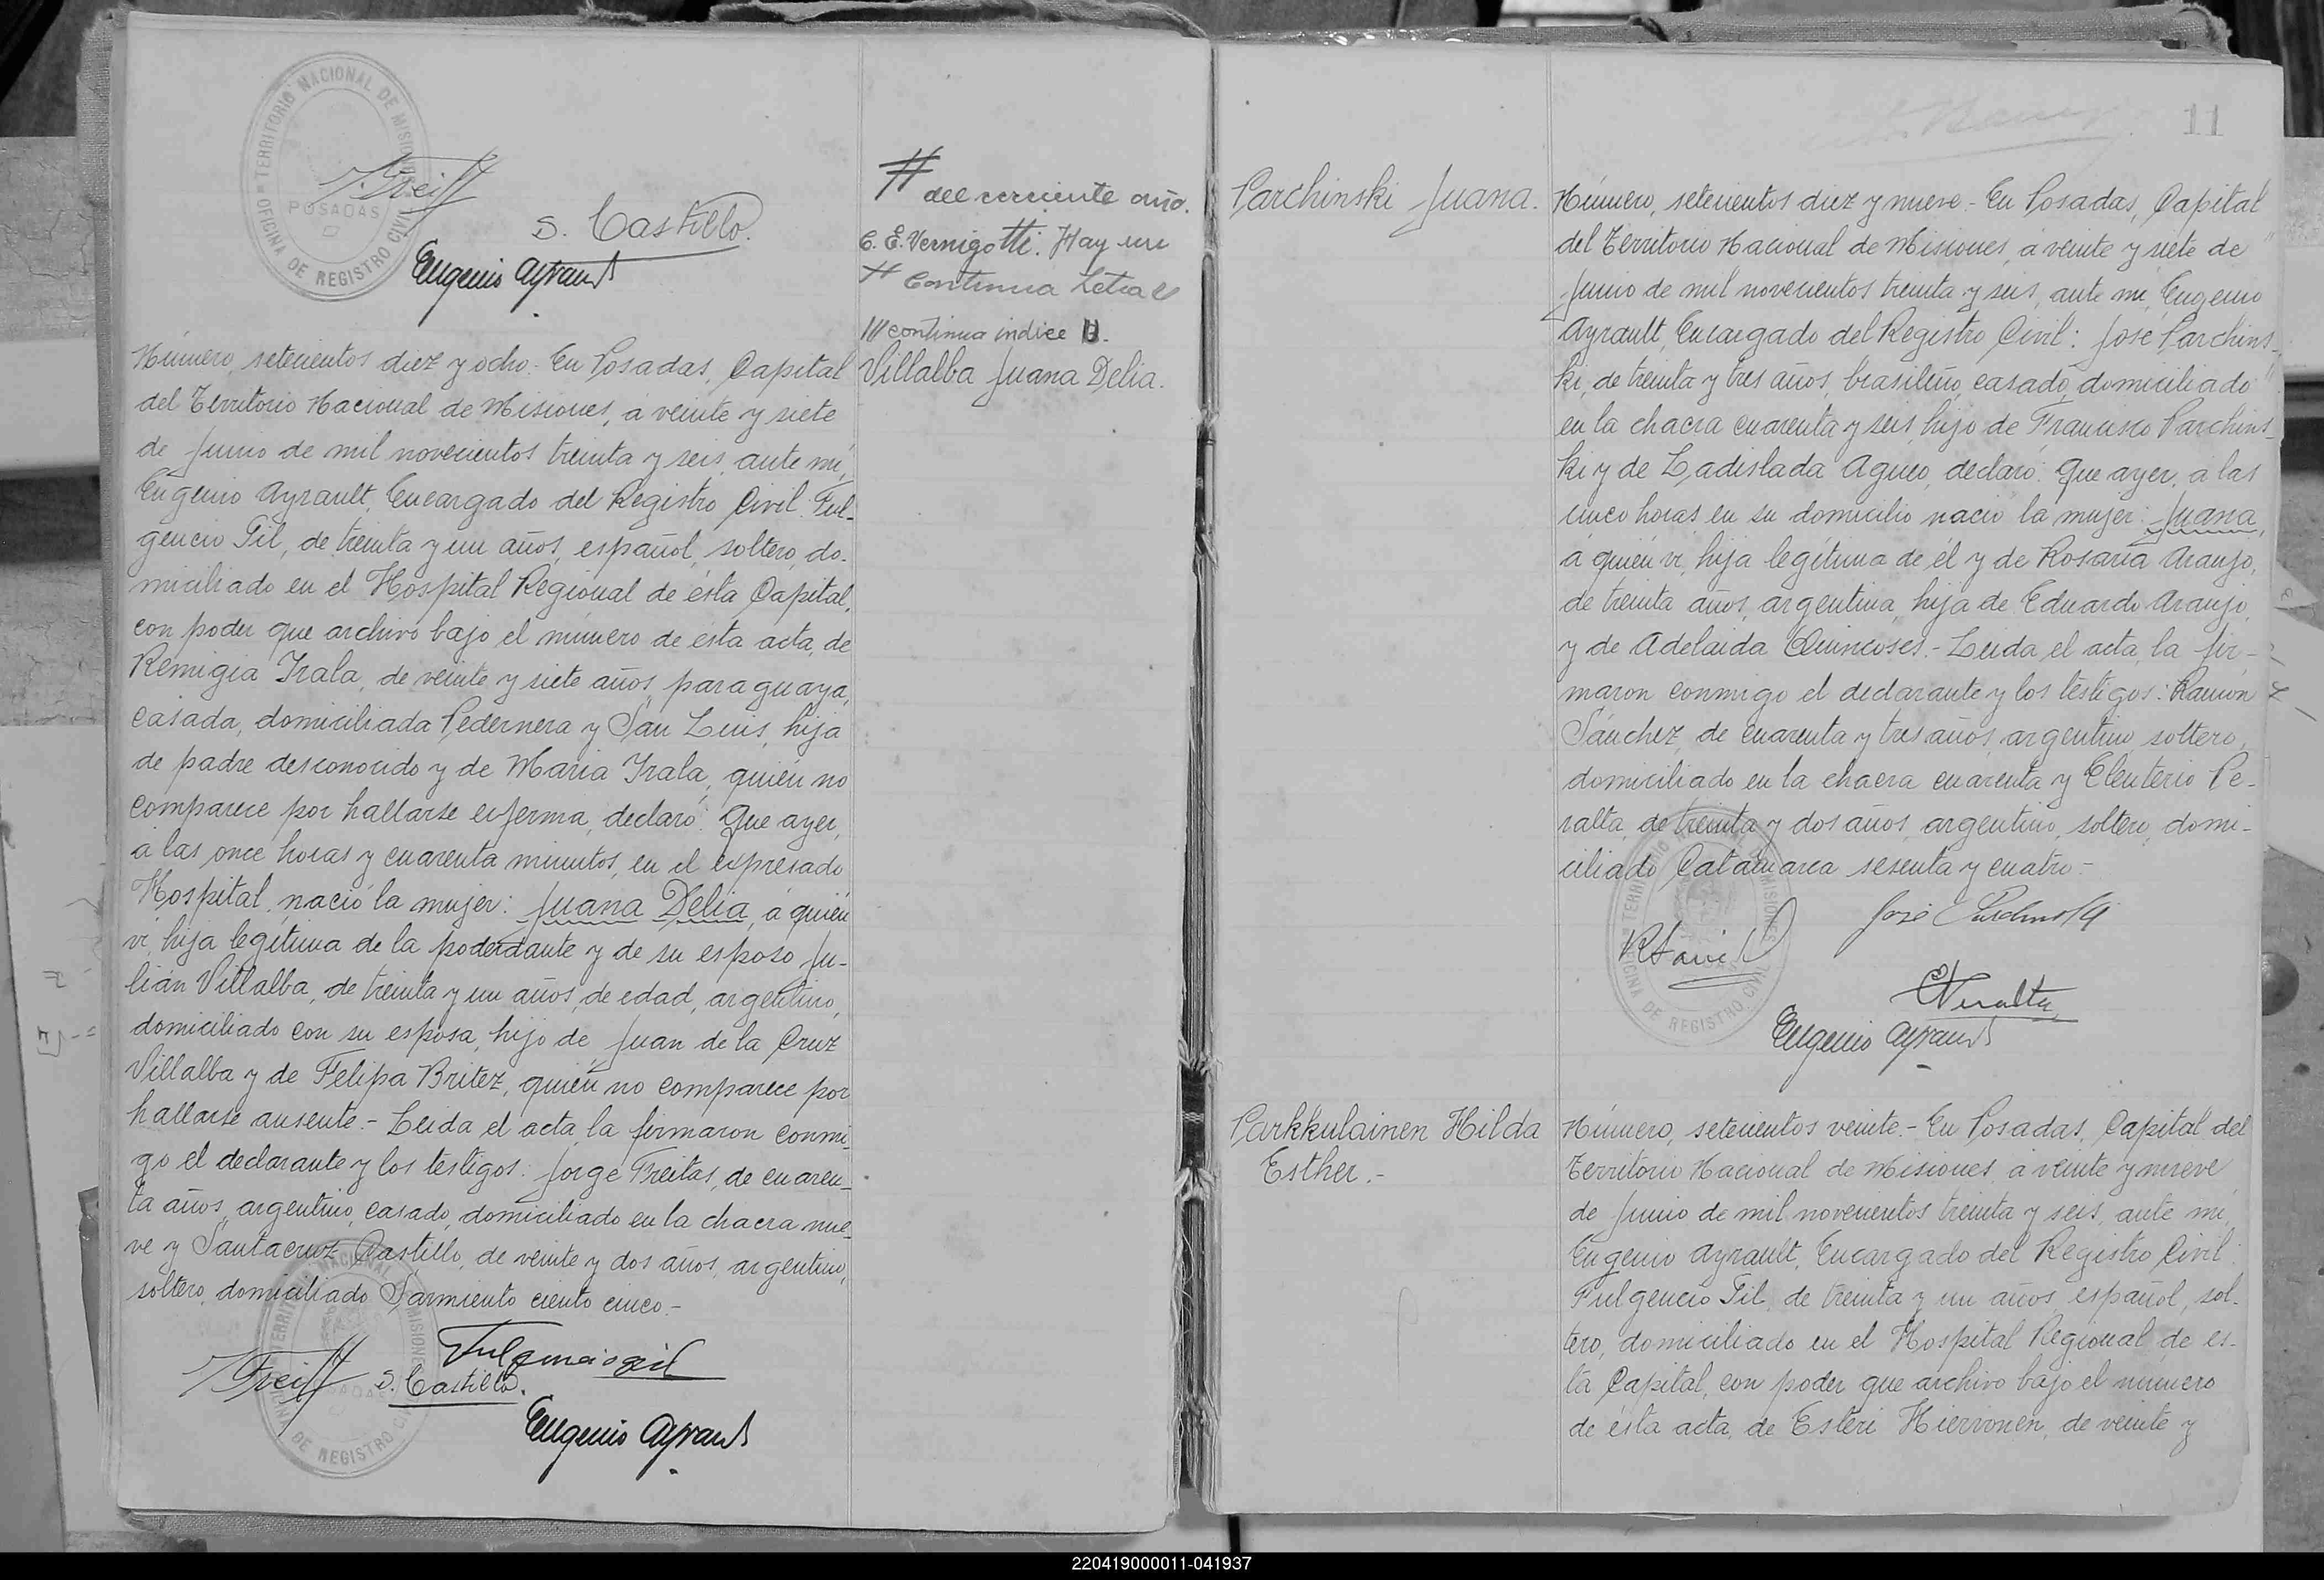 TERRITORIO NACIONAL DE MISIONES
POSADAS
OFICINA DE REGISTRO CIVIL
S. Castillo.
Eugenio Ayrault
#
del corriente año.
C. E. Vernigotti. Hay un
# Continua Letra
/// continua indice
Número, setecientos diez y ocho.- En Posadas, Capital
del Territorio Nacional de Misiones, á veinte y siete
de Junio de mil novecientos treinta y seis, ante mí,
Eugenio Ayrault, Encargado del Registro Civil: Ful-
gencio Gil, de treinta y un años, español, soltero, do-
miciliado en el Hospital Regional de ésta Capital,
con poder que archivo bajo el número de ésta acta, de
Remigia Irala, de veinte y siete años, paraguaya,
casada, domiciliada Pedernera y San Luis, hija
de padre desconocido y de Maria Irala, quién no
comparece por hallarse enferma, declaró: Que ayer,
á las once horas y cuarenta minutos, en el expresado
Hospital, nació la mujer: Juana Delia, á quién
ví, hija legítima de la poderdante y de su esposo Ju-
lián Villalba, de treinta y un años, de edad, argentino,
domiciliado con su esposa, hijo de Juan de la Cruz
Villalba y de Felipa Britez, quién no comparece por
hallarse ausente.- Leida el acta, la firmaron conmi-
go el declarante y los testigos: Jorge Freitas, de cuaren-
ta años, argentino, casado, domiciliado en la chacra nue-
ve y Santacruz Castillo, de veinte y dos años, argentino,
soltero, domiciliado Sarmiento ciento cinco.-
Villalba Juana Delia.
Fulgencio Gil
S. Castillo.
Eugenio Ayrault
TERRITORIO NACIONAL DE MISIONES
OFICINA DE REGISTRO CIVIL
11
Parchinski Juana.
Número, setecientos diez y nueve.- En Posadas, Capital
del Territorio Nacional de Misiones, á veinte y siete de
Junio de mil novecientos treinta y seis, ante mí, Eugenio
Ayrault, Encargado del Registro Civil: José Parchins-
ki, de treinta y tres años, brasileño, casado, domiciliado
en la chacra cuarenta y seis, hijo de Francisco Parchins-
ki y de Ladislada Agueo, declaró: Que ayer, á las
cinco horas, en su domicilio nació la mujer: Juana,
á quién ví, hija legítima de él y de Rosaria Araujo,
de treinta años, argentina, hija de Eduardo Araujo,
y de Adelaida Quincoses.- Leida el acta, la fir-
maron conmigo el declarante y los testigos: Ramón
Sánchez, de cuarenta y tres años, argentino, soltero,
domiciliado en la chacra cuarenta y Eleuterio Pe-
ralta, de treinta y dos años, argentino, soltero, domi-
ciliado Catamarca sesenta y cuatro.-
José Parchinski
E Peralta
Eugenio Ayrault
TERRITORIO MISIONES
OFICINA DE REGISTRO CIVIL
Parkkulainen Hilda
Esther.-
Número, setecientos veinte.- En Posadas, Capital del
Territorio Nacional de Misiones, á veinte y nueve
de Junio de mil novecientos treinta y seis, ante mí,
Eugenio Ayrault, Encargado del Registro Civil:
Fulgencio Gil, de treinta y un años, español, sol-
tero, domiciliado en el Hospital Regional de és-
ta Capital, con poder que archivo bajo el número
de ésta acta, de Esteri Hiervonen, de veinte y
220419000011-041937